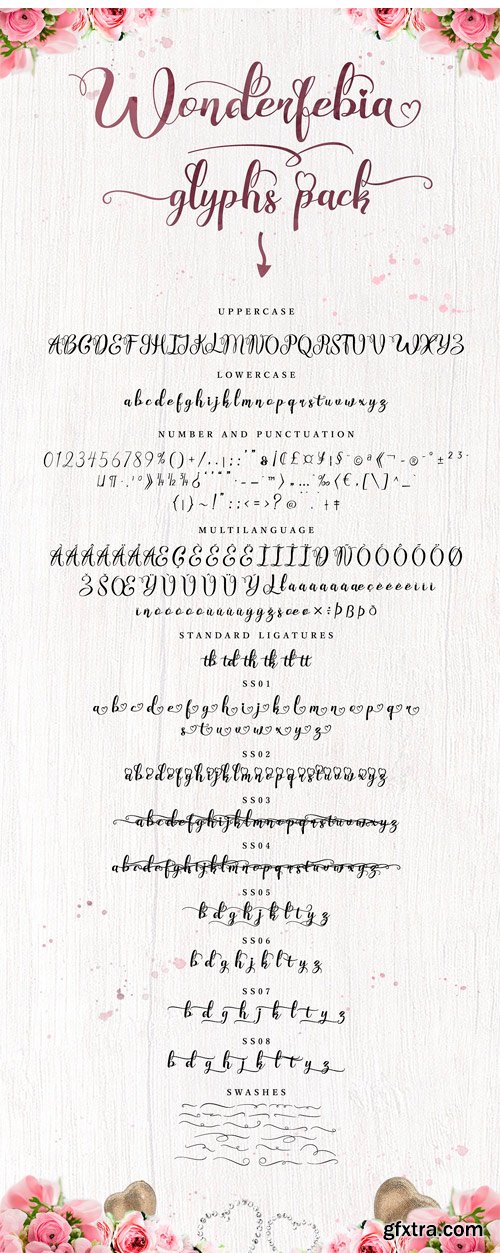 Wonderfebia
glyphs pack
UPPERCASE
ABCDEFGHIJKLMNOPQRSTUVWXYZ
LOWERCASE
abcdefghijklmnopqrstuvwxyz
NUMBER AND PUNCTUATION
MULTILANGUAGE
STANDARD LIGATURES
tb td th tk tl tt
SS01
a b c d e f g h i j k l m n o p q r
s t u v w x y z
SS02
abcdefghijklmnopqrstuvwxyz
SS03
abcdefghijklmnopqrstuvwxyz
SS04
abcdefghijklmnopqrstuvwxyz
SS05
b d g h j k l t y z
SS06
b d g h j k l t y z
SS07
b d g h j k l t y z
SS08
b d g h j k l t y z
SWASHES
gfxtra.com